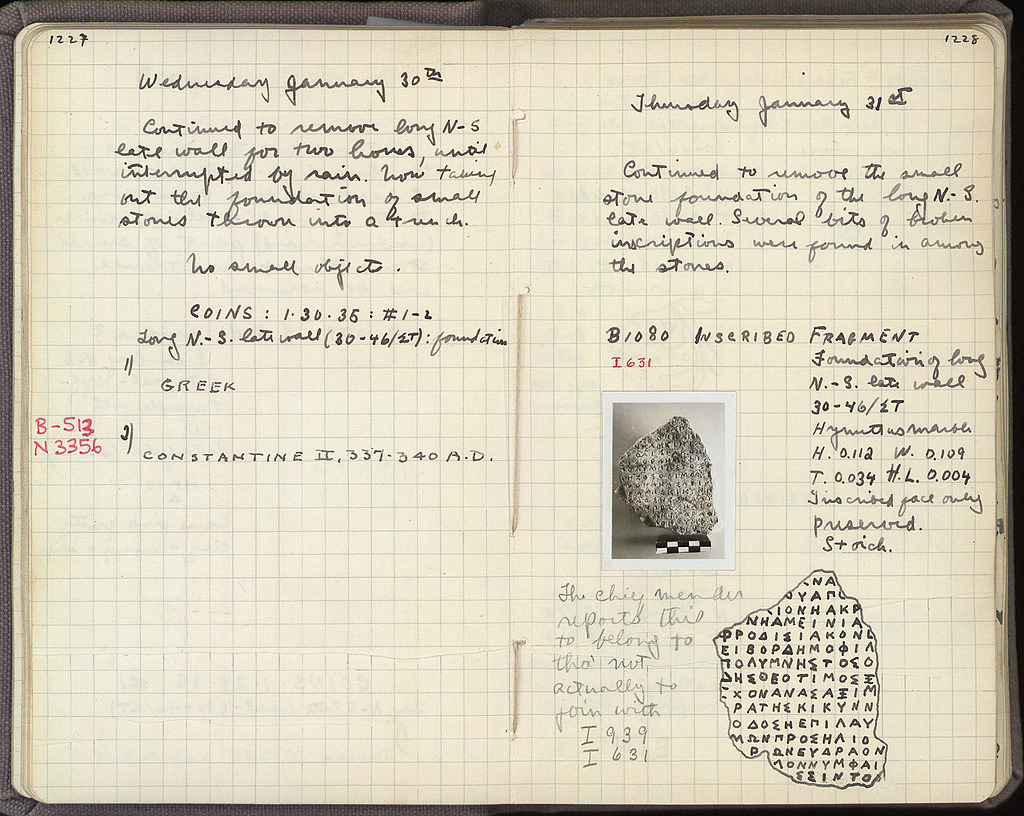 1227
Wednesday January 30th
Continued to remove long N-S
late wall for two hours, until
interrupted by rain. Now taking
out the foundation of small
stones thrown into a trench.
No small objects.
COINS: 1·30·35: #1-2
Long N.-S. late wall (30-46/ΣΤ): foundation
1)
GREEK
B-513
N 3356
2)
CONSTANTINE II, 337-340 A.D.
1228
Thursday January 31st
Continued to remove the small
stone foundation of the long N.-S.
late wall. Several bits of broken
inscriptions were found in among
the stones.
B1080 INSCRIBED FRAGMENT
I 631
Foundation of long
N.-S. late wall
30-46/ΣΤ
Hymettus marble
H. 0.112 W. 0.109
T. 0.034 H.L. 0.004
Inscribed face only
preserved.
Stoich.
The chief mender
reports this
to belong to
tho' not
actually to
join with
I 939
I 631
ΝΑ
ΥΑΠ
ΙΟΝΗΑΚΡ
ΝΗΑΜΕΙΝΙΑ
ΦΡΟΔΙΣΙΑΚΟΝΕ
ΕΙΒΟΡΔΗΜΟΦΙΛ
ΠΟΛΥΜΝΗΣΤΟΣΟ
ΔΗΣΘΕΟΤΙΜΟΣΞ
ΧΟΝΑΝΑΣΑΞΙΜ
ΡΑΤΗΣΚΙΚΥΝΝ
ΟΔΟΣΗΕΠΙΛΑΥ
ΜΩΝΠΡΟΣΗΛΙΟ
ΡΩΝΕΥΔΡΑΟΝ
ΛΟΝΝΥΜΦΑΙ
ΣΣΙΝΤΟ